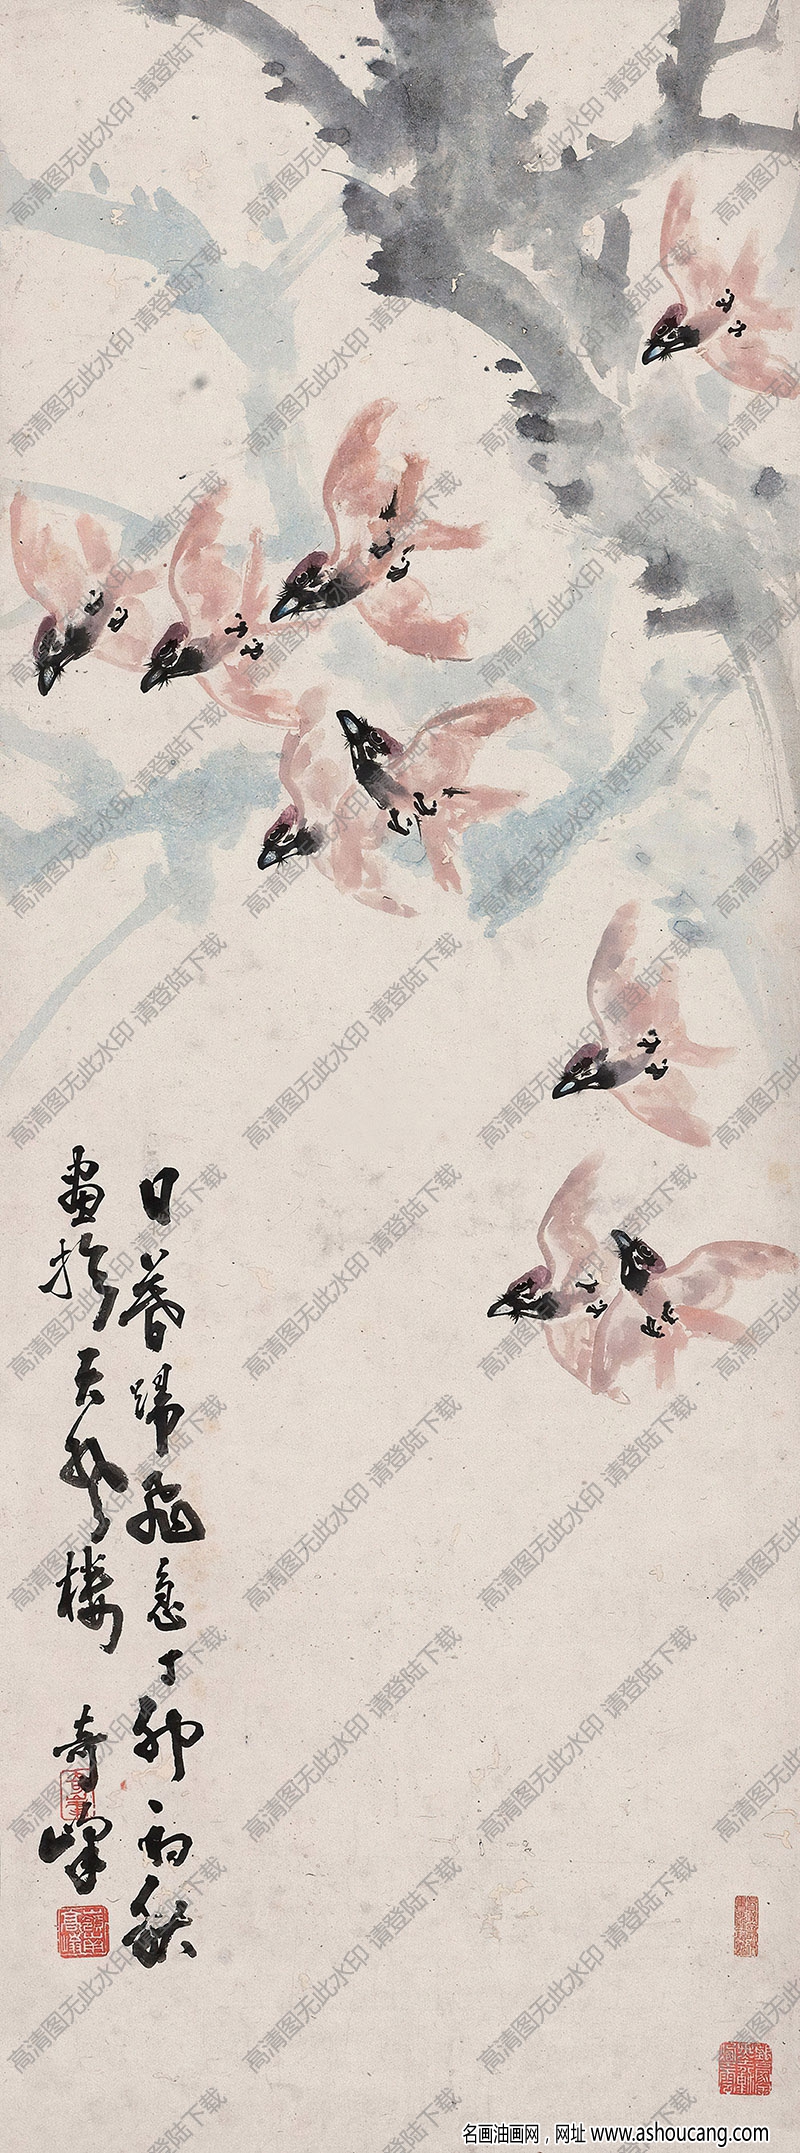 日暮歸飛急丁卯初秋
畫於天風樓 奇峰
高清图无此水印 请登陆下载
名画油画网，网址 www.ashoucang.com